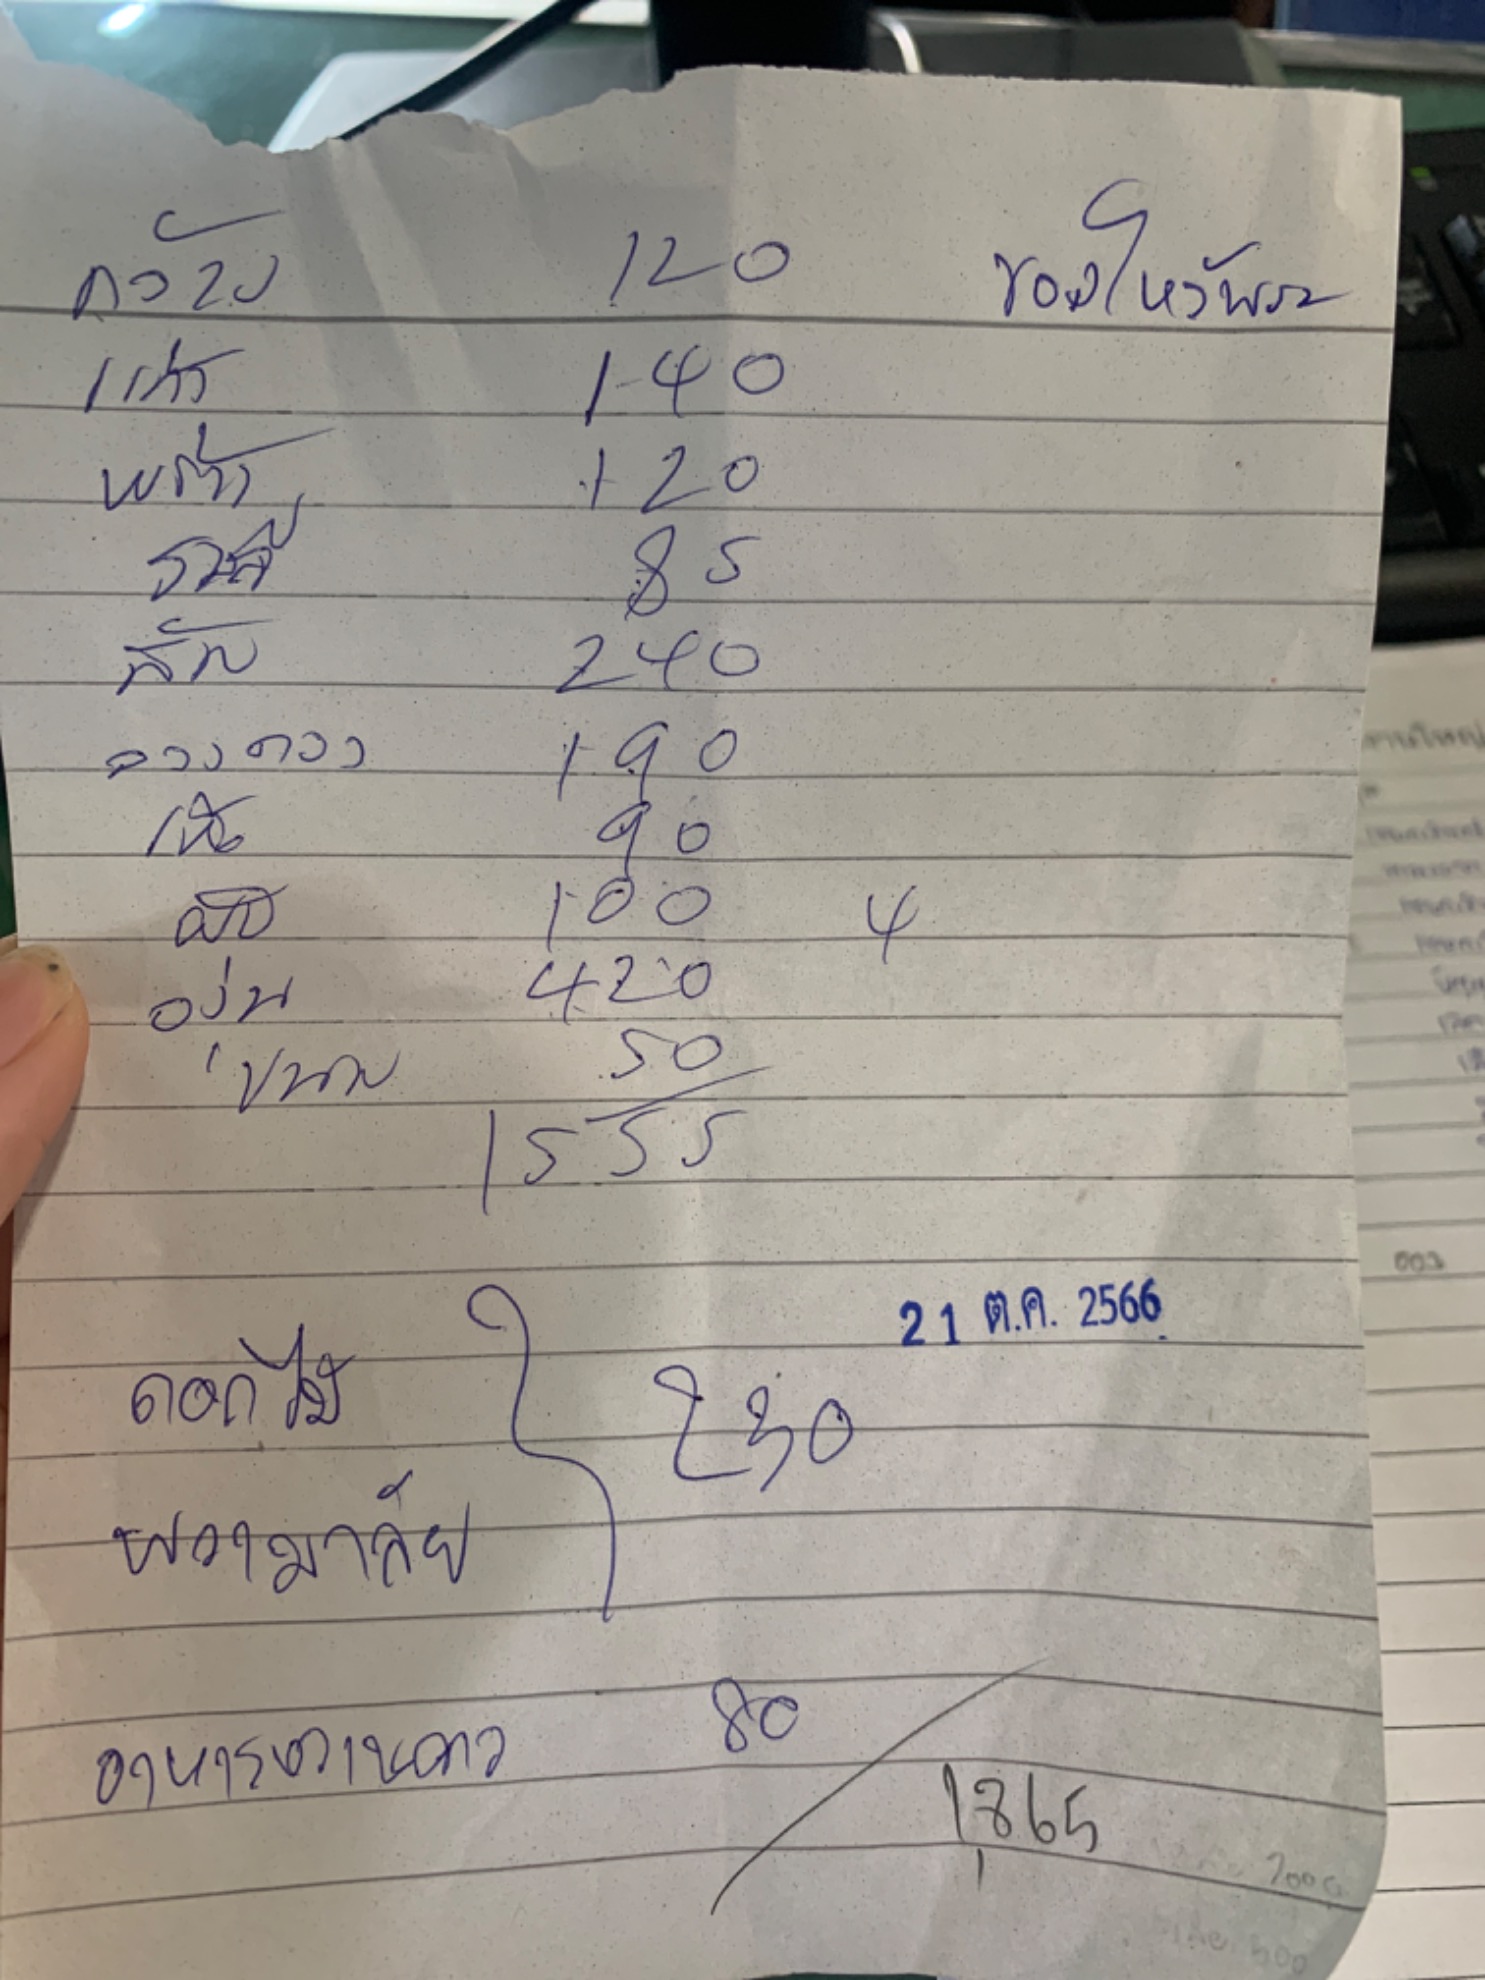 กล้วย 120 ของไหว้พระ
แก้ว 140
พร้าว 120
สาลี่ 85
ส้ม 240
ลองกอง 190
90
100 4
องุ่น 420
ขนม 50
1555
21 ต.ค. 2566
ดอกไม้ 230
พวงมาลัย
อาหารหวานคาว 80
1865